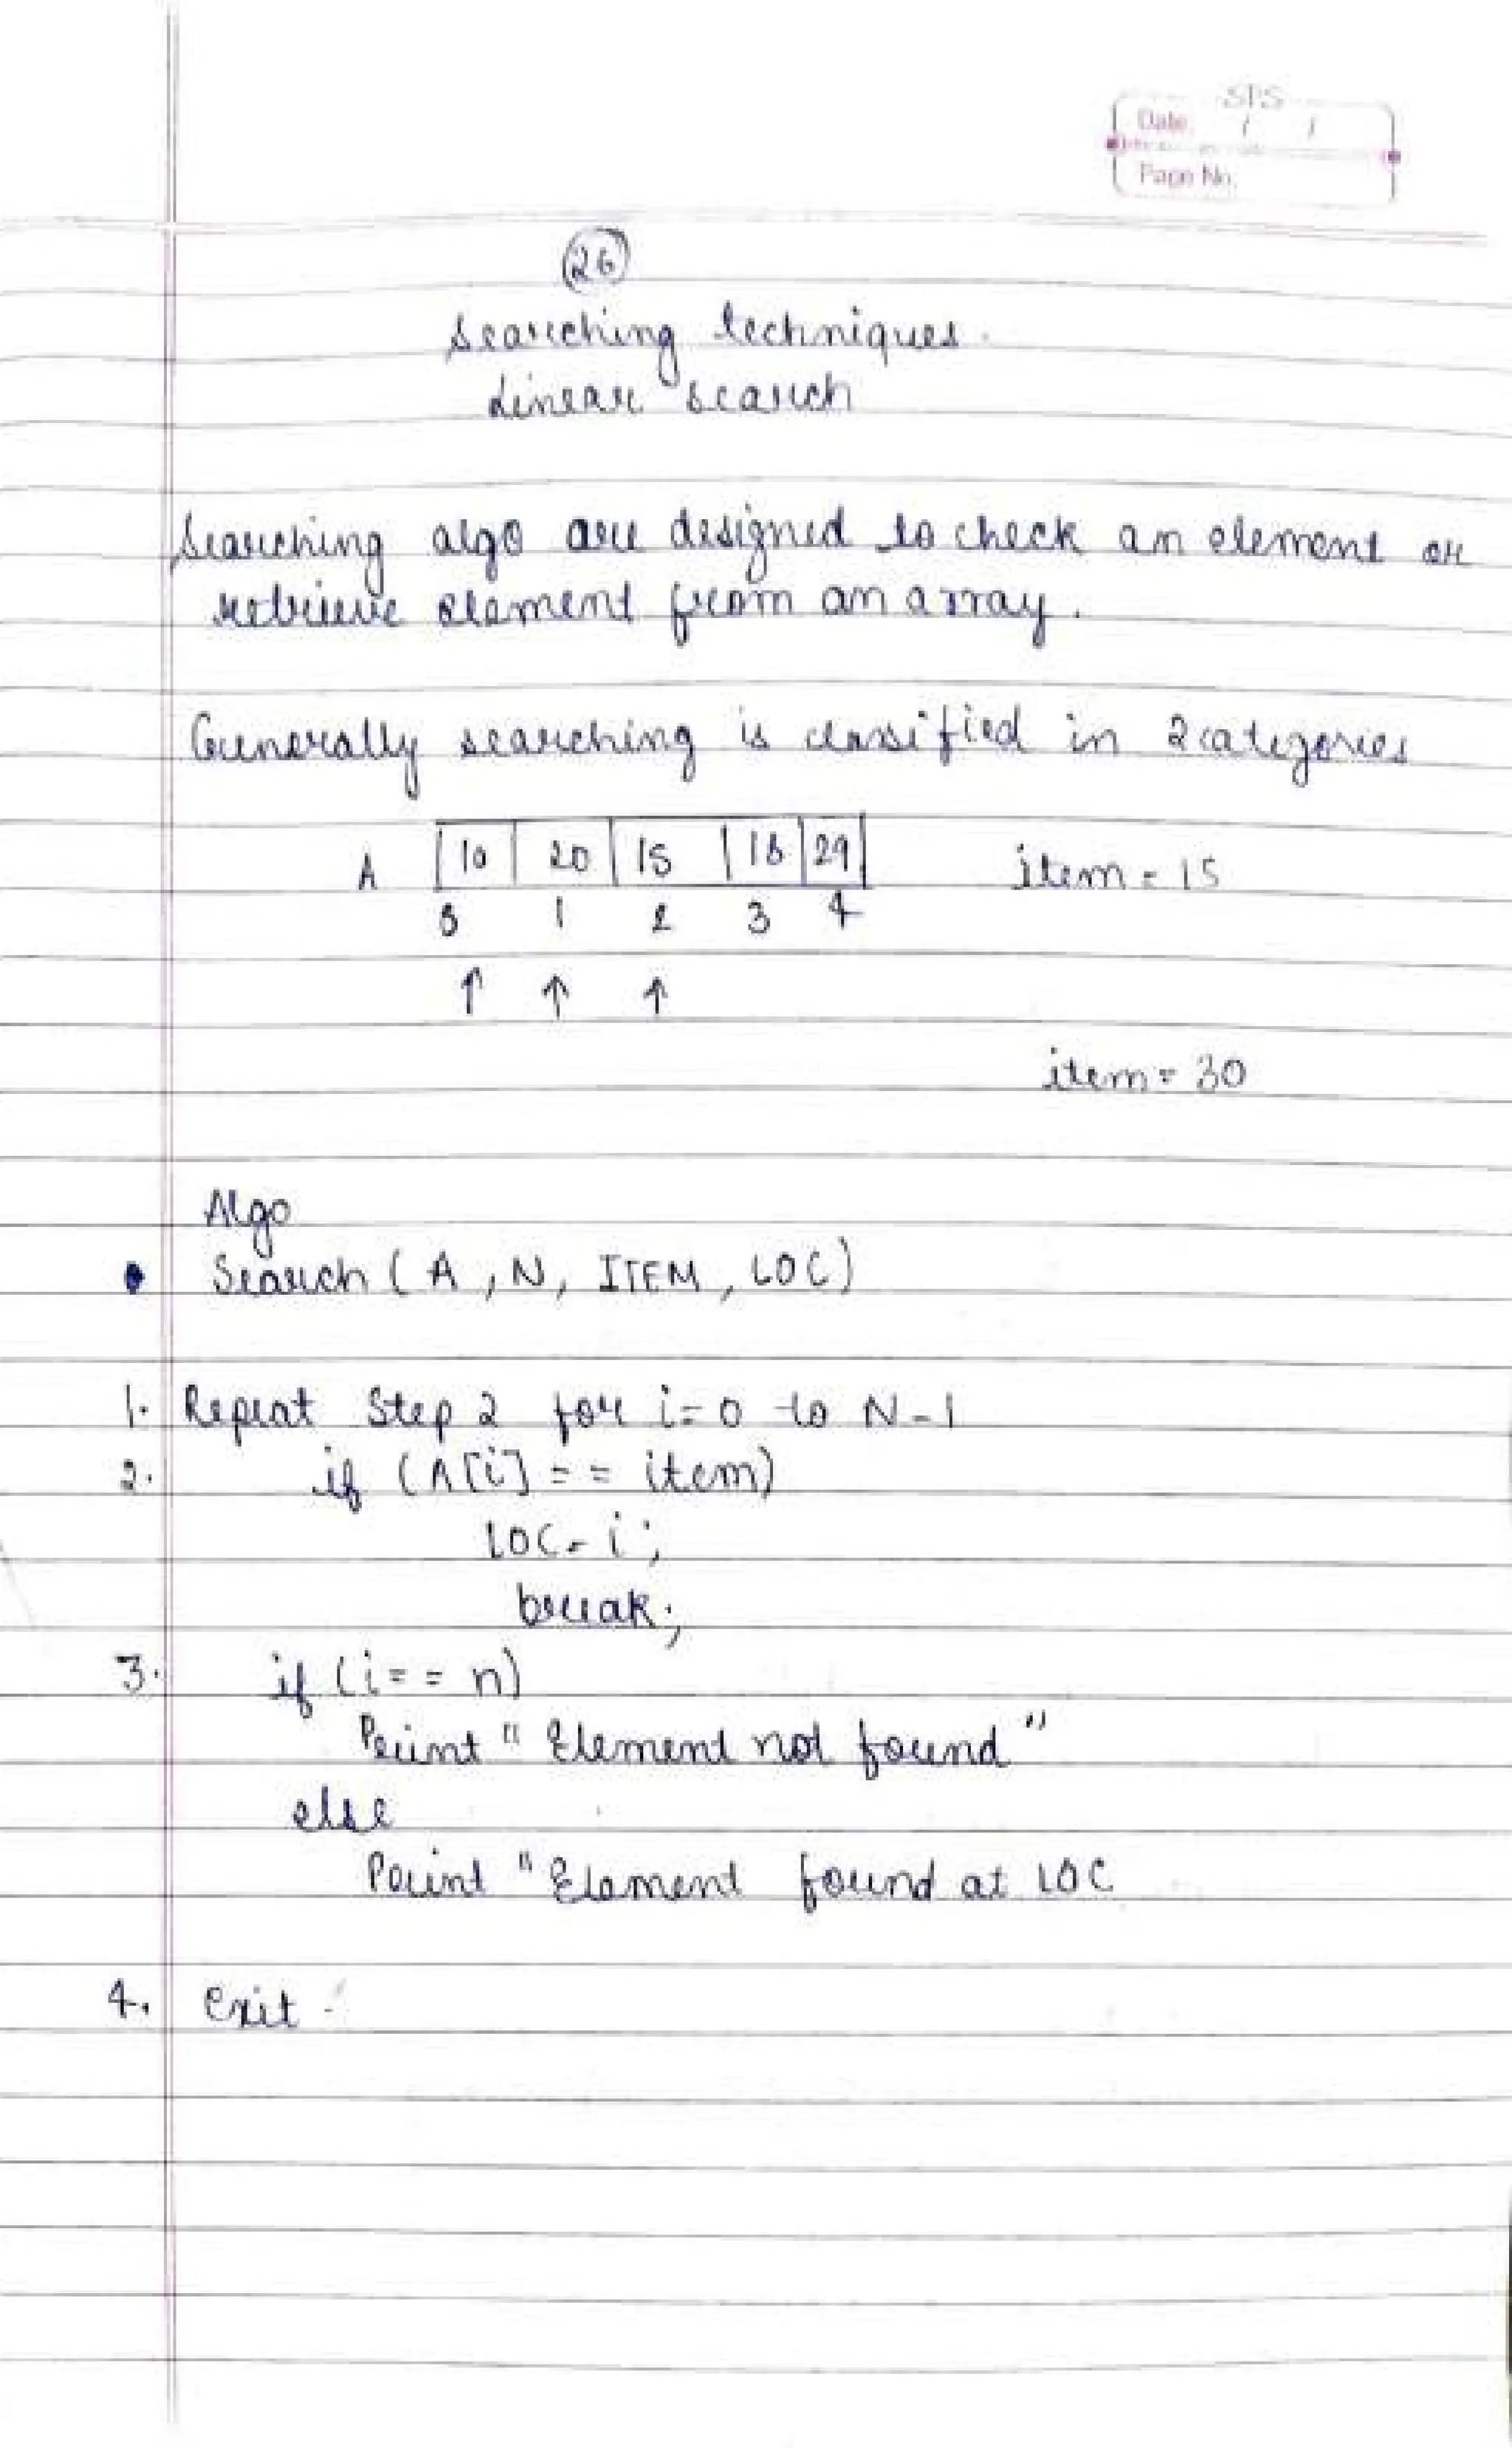 SPS
Date / /
Page No.
26
Searching techniques.
Linear search
Searching algo are designed to check an element or
retrieve element from an array.
Generally searching is classified in 2 categories
A 10 20 15 18 29 item = 15
0 1 2 3 4
↑ ↑ ↑
item = 30
Algo
• Search (A, N, ITEM, LOC)
1. Repeat Step 2 for i=0 to N-1
2. if (A[i] == item)
LOC = i;
break;
3. if (i == n)
Print "Element not found"
else
Print "Element found at LOC
4. Exit